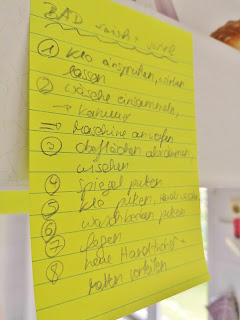 BAD
① Klo einsprühen, wirken
lassen
② Wäsche einsammeln,
→
⇒ Maschine anwerfen
③ Oberflächen abräumen,
wischen
④ Spiegel putzen
⑤ Klo putzen,
⑥ Waschbecken putzen
⑦ fegen
⑧ neue Handtücher +
Matten verteilen